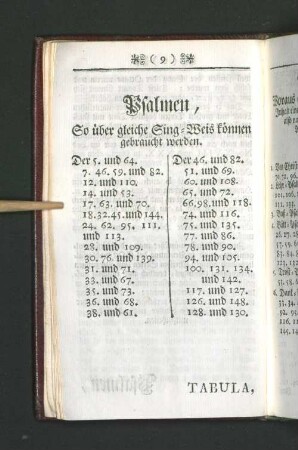 ( 9 )
Psalmen,
So über gleiche Sing-Weis können
gebraucht werden.
Der 5. und 64.
7. 46. 59. und 82.
12. und 110.
14. und 53.
17. 63. und 70.
18. 32. 45. und 144.
24. 62. 95. 111.
und 113.
28. und 109.
30. 76. und 139.
31. und 71.
33. und 67.
35. und 73.
36. und 68.
38. und 61.
Der 46. und 82.
51. und 69.
60. und 108.
65. und 72.
66. 98. und 118.
74. und 116.
75. und 135.
77. und 86.
78. und 90.
94. und 105.
100. 131. 134.
und 142.
117. und 127.
126. und 148.
128. und 130.
TABULA,